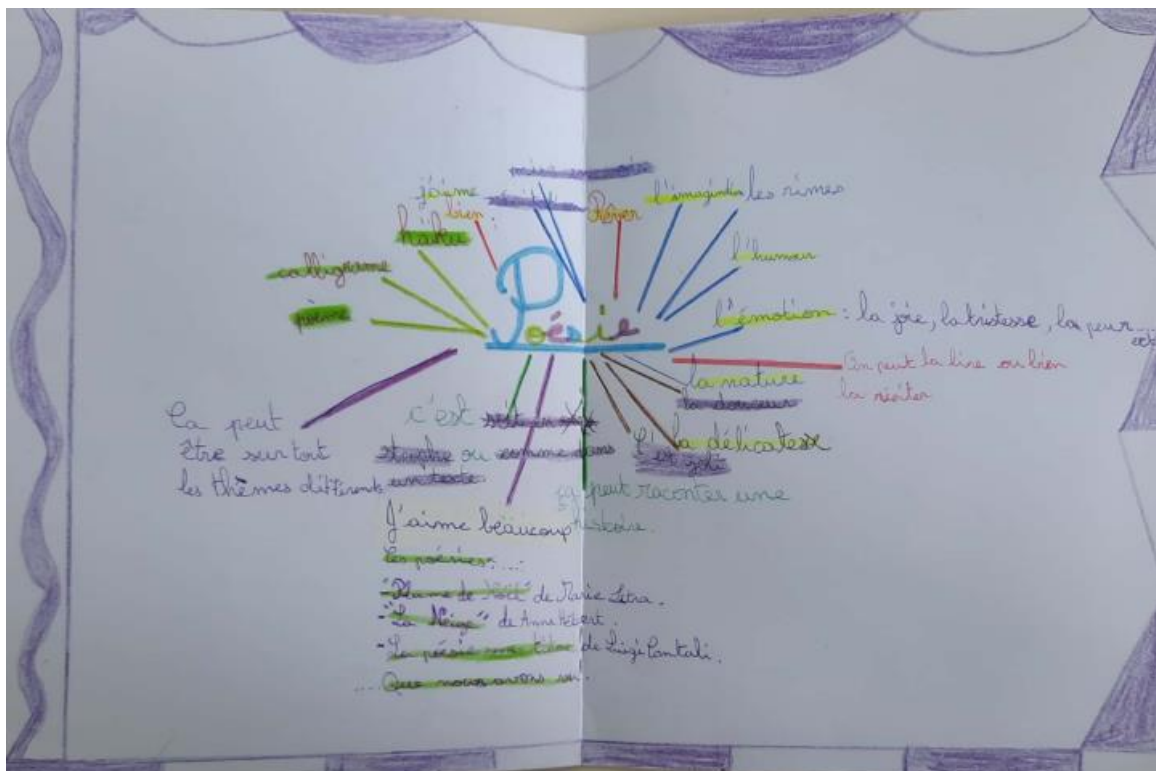 j'aime
bien :
Rêver
l'imagination
les rimes
haïku
calligrame
l'humour
poème
Poésie
l'émotion : la joie, la tristesse, la peur.... ect
On peut la lire ou bien
la réciter
la nature
la douceur
la délicatesse
C'est joli
Ca peut
être sur tout
les thèmes différents
c'est soit en
strophe ou comme dans
un texte
ça peut raconter une
histoire.
J'aime beaucoup
les poésies....:
- "Plume de Noël" de Marie Litra.
- "La Neige" de Anne Hébert.
- La poésie sans titre de Luigi
.... Que nous avons vu!